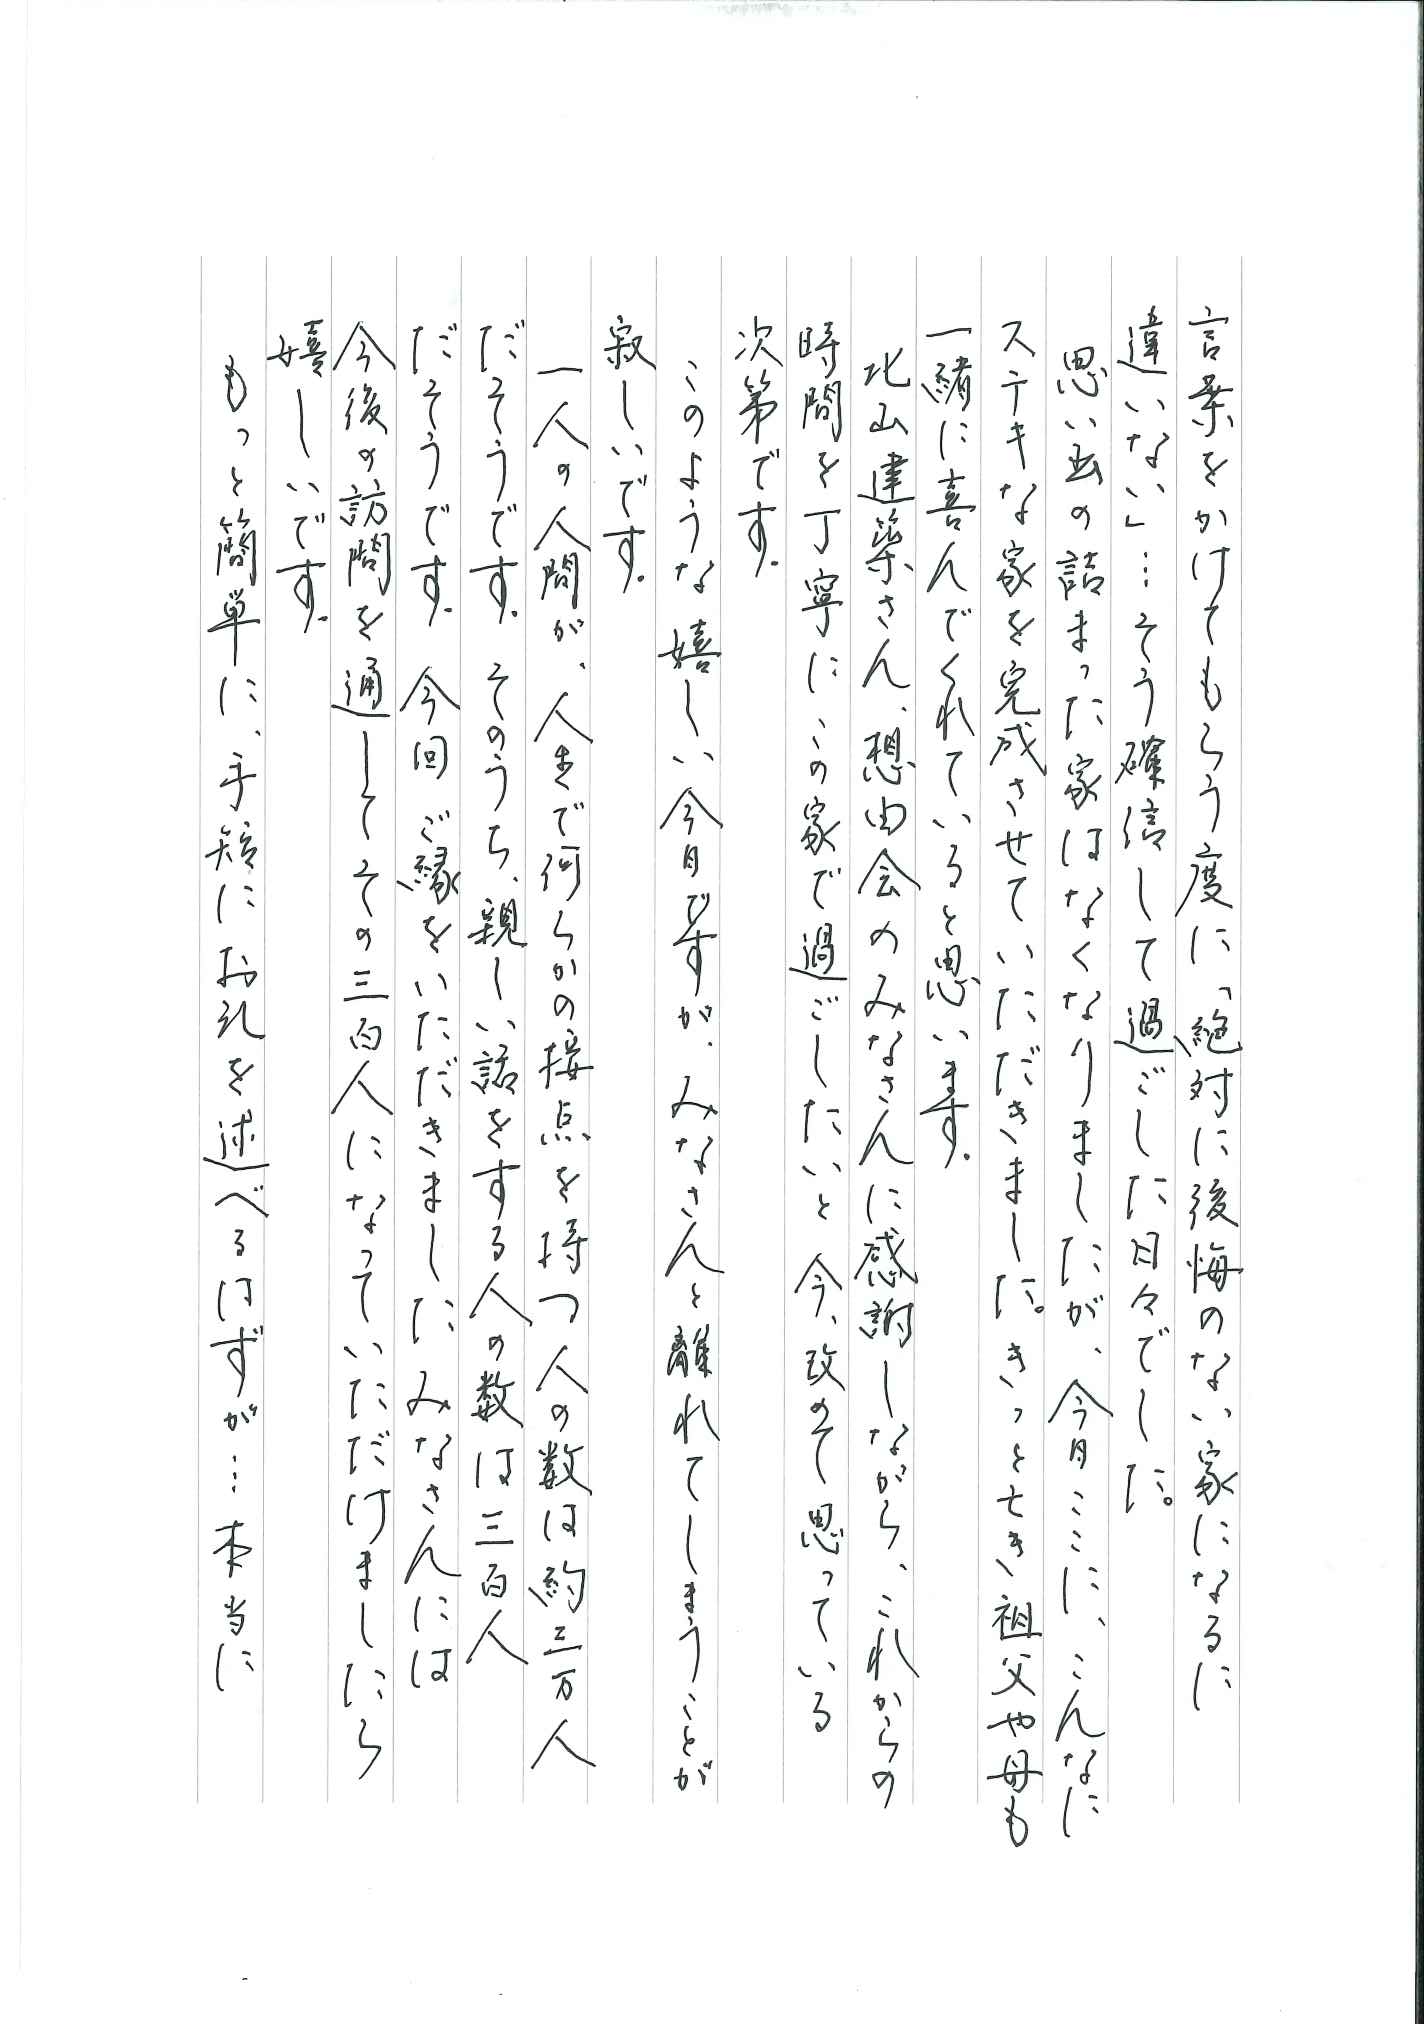 言葉をかけてもらう度に「絶対に後悔のない家になるに
違いない」…そう確信して過ごした日々でした。
思い出の詰まった家はなくなりましたが、今日ここに、こんなに
ステキな家を完成させていただきました。きっと亡き祖父や母も
一緒に喜んでくれていると思います。
北山建築さん、想由会のみなさんに感謝しながら、これからの
時間を丁寧にこの家で過ごしたいと今、改めて思っている
次第です。
このような嬉しい今日ですが、みなさんと離れてしまうことが
寂しいです。
一人の人間が、人生で何らかの接点を持つ人の数は約三万人
だそうです。そのうち、親しい話をする人の数は三百人
だそうです。今回ご縁をいただきましたみなさんには
今後の訪問を通してその三百人になっていただけましたら
嬉しいです。
もっと簡単に、手短にお礼を述べるはずが…本当に